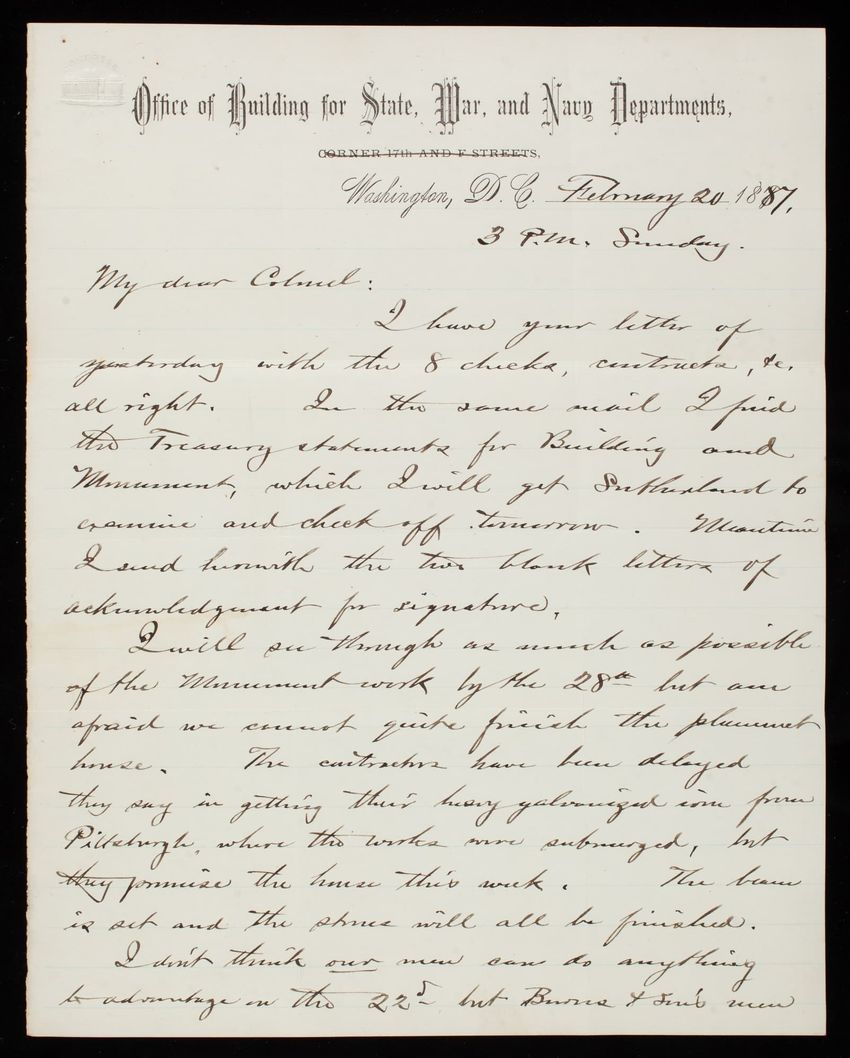 Office of Building for State, War, and Navy Departments,
CORNER 17th AND F STREETS,
Washington, D.C. February 20 1887.
3 P.M. Sunday.
My dear Colonel:
I have your letter of
yesterday with the 8 checks, contracts, &c.
all right. In the same mail I find
the Treasury statements for Building and
Monument, which I will get Sutherland to
examine and check off tomorrow. Meantime
I send herewith the two blank letters of
acknowledgment for signature.
I will see through as much as possible
of the Monument work by the 28th but am
afraid we cannot quite finish the plummet
house. The contractors have been delayed
they say in getting their heavy galvanized iron from
Pittsburgh, where the works were submerged, but
they promise the house this week. The beam
is set and the stones will all be finished.
I don't think our men can do anything
to advantage on the 22d but Burns & Son's men